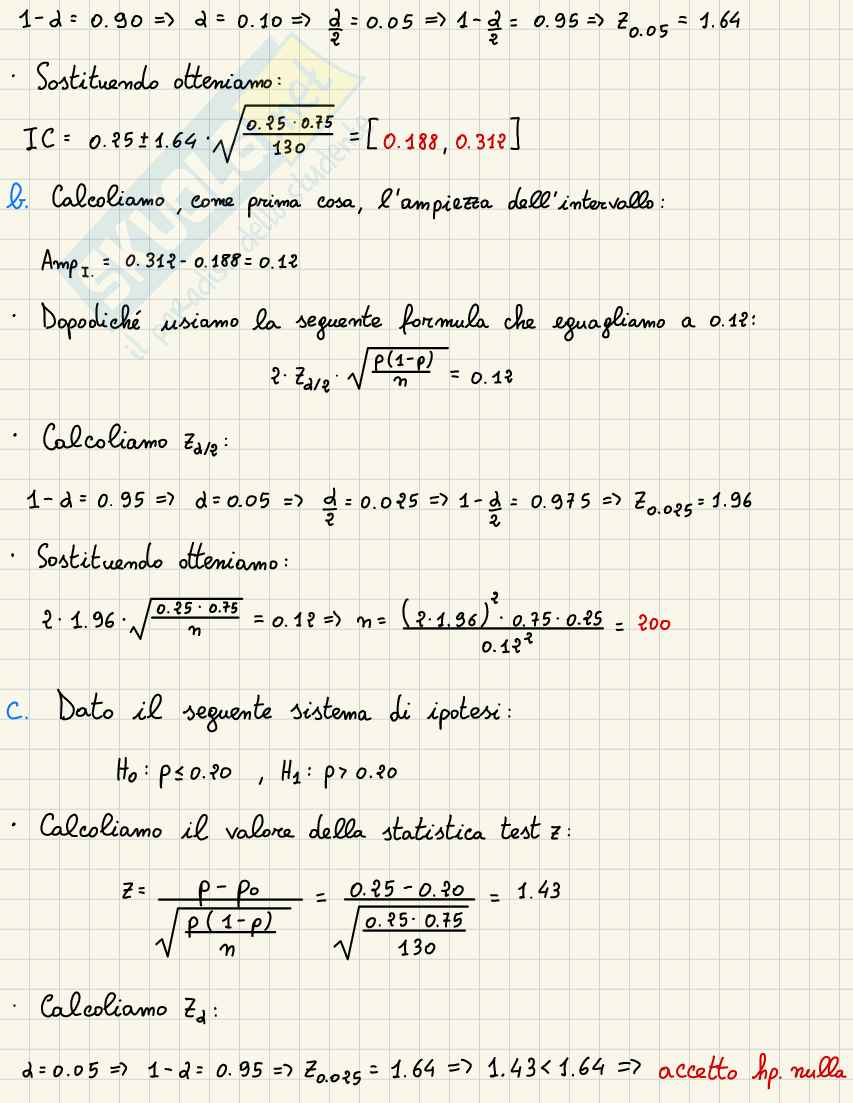 1-α = 0.90 => α = 0.10 => α/2 = 0.05 => 1-α/2 = 0.95 => Z0.05 = 1.64
· Sostituendo otteniamo:
IC = 0.25 ± 1.64 · √(0.25 · 0.75 / 130) = [0.188, 0.312]
b. Calcoliamo, come prima cosa, l'ampiezza dell'intervallo:
Amp I. = 0.312 - 0.188 = 0.12
· Dopodiché usiamo la seguente formula che eguagliamo a 0.12:
2 · Zα/2 · √(p(1-p) / n) = 0.12
· Calcoliamo Zα/2:
1-α = 0.95 => α = 0.05 => α/2 = 0.025 => 1-α/2 = 0.975 => Z0.025 = 1.96
· Sostituendo otteniamo:
2 · 1.96 · √(0.25 · 0.75 / n) = 0.12 => n = (2·1.96)² · 0.75 · 0.25 / 0.12² = 200
c. Dato il seguente sistema di ipotesi:
H0: p ≤ 0.20 , H1: p > 0.20
· Calcoliamo il valore della statistica test z:
z = p - p0 / √(p(1-p) / n) = 0.25 - 0.20 / √(0.25 · 0.75 / 130) = 1.43
· Calcoliamo Zα:
α = 0.05 => 1-α = 0.95 => Z0.025 = 1.64 => 1.43 < 1.64 => accetto hp. nulla
SKUOLA.net
il paradiso dello studente